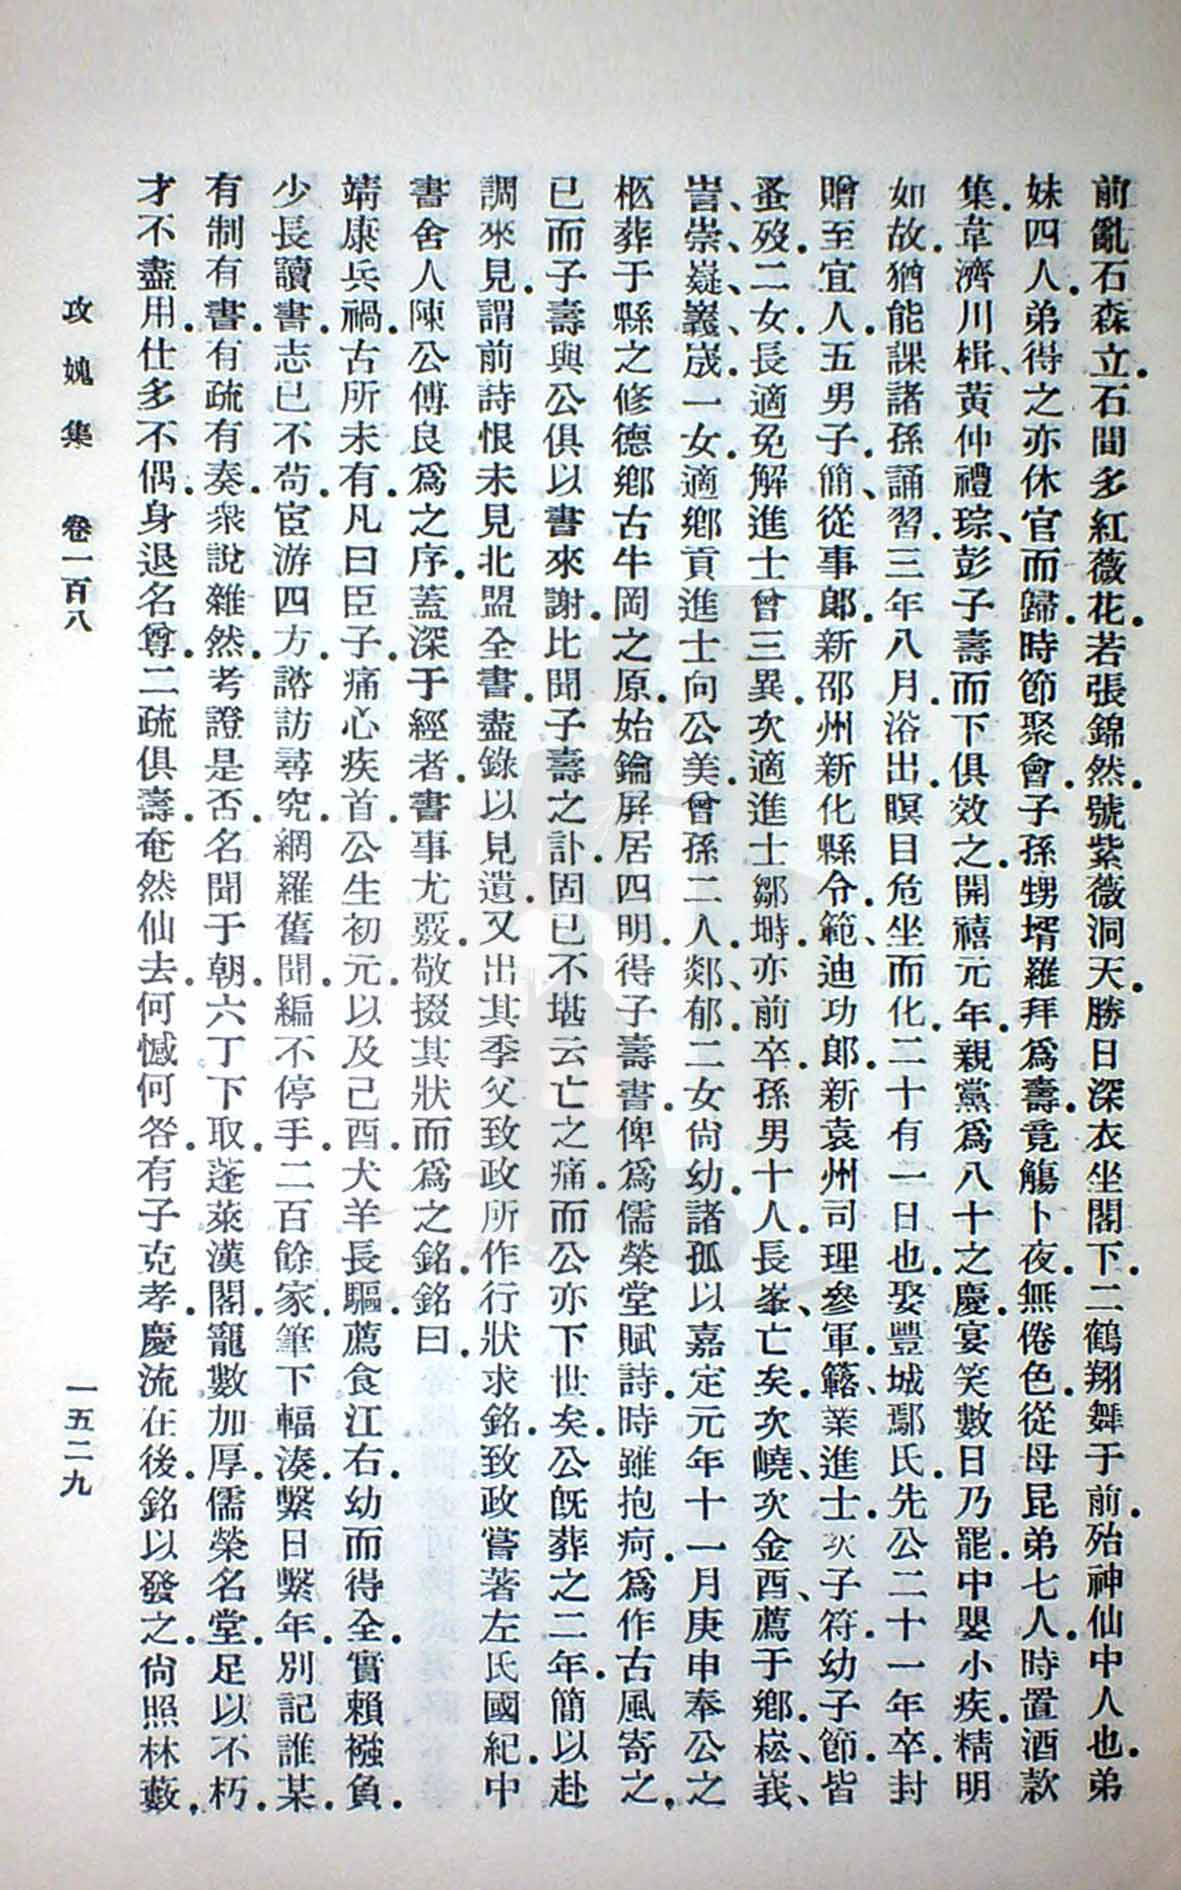 前亂石森立．石間多紅薇花．若張錦然．號紫薇洞天．勝日深衣坐閣下．二鶴翔舞于前．殆神仙中人也．弟
妹四人．弟得之亦休官而歸．時節聚會．子孫甥壻羅拜爲壽．竟觴卜夜．無倦色．從母昆弟七人．時置酒款
集．韋濟川楫、黃仲禮琮、彭子壽而下．俱效之．開禧元年．親黨爲八十之慶．宴笑數日乃罷．中嬰小疾．精明
如故．猶能課諸孫誦習．三年八月．浴出．瞑目危坐而化．二十有一日也．娶豐城鄢氏．先公二十一年卒．封
贈至宜人．五男子．簡、從事郎．新邵州新化縣令．範、迪功郎．新袁州司理參軍．簬、業進士．次子符．幼子節．皆
蚤歿．二女．長適免解進士曾三異．次適進士鄒塒．亦前卒．孫男十人．長峯、亡矣．次嶢、次金西、薦于鄉．崧、峩、
峕、崇、嶷、巖、峸．一女．適鄉貢進士向公美．曾孫二人．郯、郁．二女尙幼．諸孤以嘉定元年十一月庚申奉公之
柩葬于縣之修德鄉古牛岡之原．始鑰屛居四明．得子壽書．俾爲儒榮堂賦詩．時雖抱疴．爲作古風寄之．
已而子壽與公俱以書來謝．比聞子壽之訃．固已不堪云亡之痛．而公亦下世矣．公旣葬之二年．簡以赴
調來見．謂前詩恨未見北盟全書．盡錄以見遺．又出其季父致政所作行狀求銘．致政嘗著左氏國紀．中
書舍人陳公傅良爲之序．蓋深于經者．書事尤覈．敬掇其狀而爲之銘．銘曰．
靖康兵禍．古所未有．凡曰臣子．痛心疾首．公生初元．以及己酉．犬羊長驅．薦食江右．幼而得全．實賴襁負．
少長讀書．志已不苟．宦游四方．諮訪尋究．網羅舊聞．編不停手．二百餘家．筆下輻湊．繫日繫年．別記誰某．
有制有書．有疏有奏．衆說雜然．考證是否．名聞于朝．六丁下取．蓬萊漢閣．寵數加厚．儒榮名堂．足以不朽．
才不盡用．仕多不偶．身退名尊．二疏俱壽．奄然仙去．何憾何咎．有子克孝．慶流在後．銘以發之．尙照林藪．
攻媿集　卷一百八　一五二九